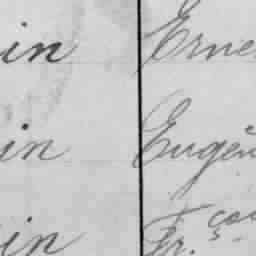 in Erne
in Eugèn
in Fr. çois